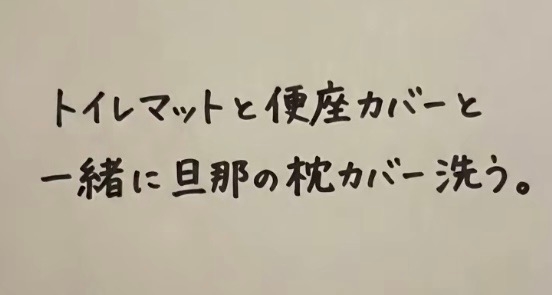 トイレマットと便座カバーと
一緒に旦那の枕カバー洗う。